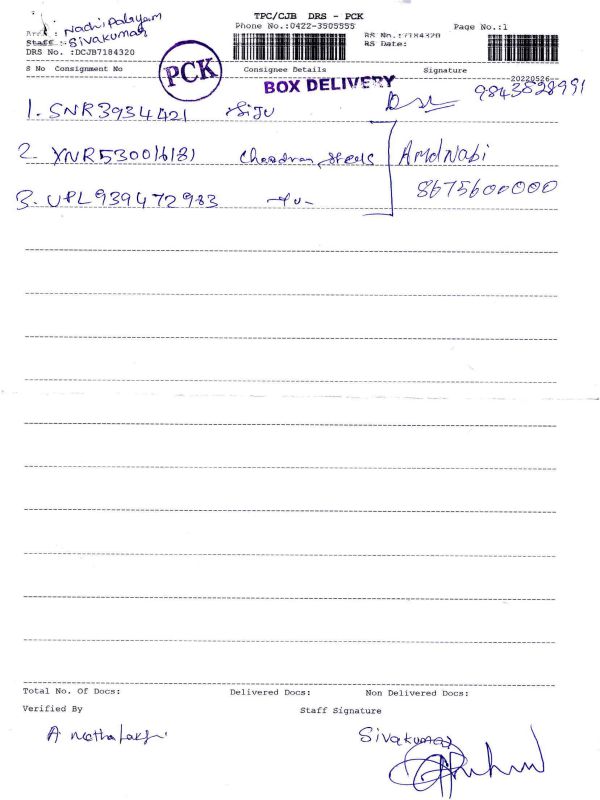 TPC/CJB DRS - PCK
: Nachipalayam
Phone No.:0422-3505555
Page No.:1
Staff : Sivakumar
RS No.:7184320
DRS No. :DCJB7184320
RS Date:
PCK
S No Consignment No Consignee Details Signature
BOX DELIVERY
20220526
9843828991
1. SNR3934421 Siju
2. XNR530016181 Chandran Steels
Amd Nabi
8675600000
3. UPL939472983
Total No. Of Docs: Delivered Docs: Non Delivered Docs:
Verified By Staff Signature
Sivakumar